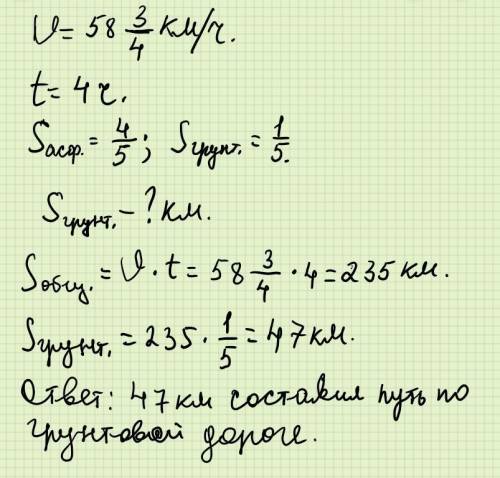 V = 58 3/4 км/ч.
t = 4 ч.
Sасф. = 4/5; Sгрунт. = 1/5.
Sгрунт. - ? км.
Sобщ. = V · t = 58 3/4 · 4 = 235 км.
Sгрунт. = 235 · 1/5 = 47 км.
Ответ: 47 км составил путь по
грунтовой дороге.